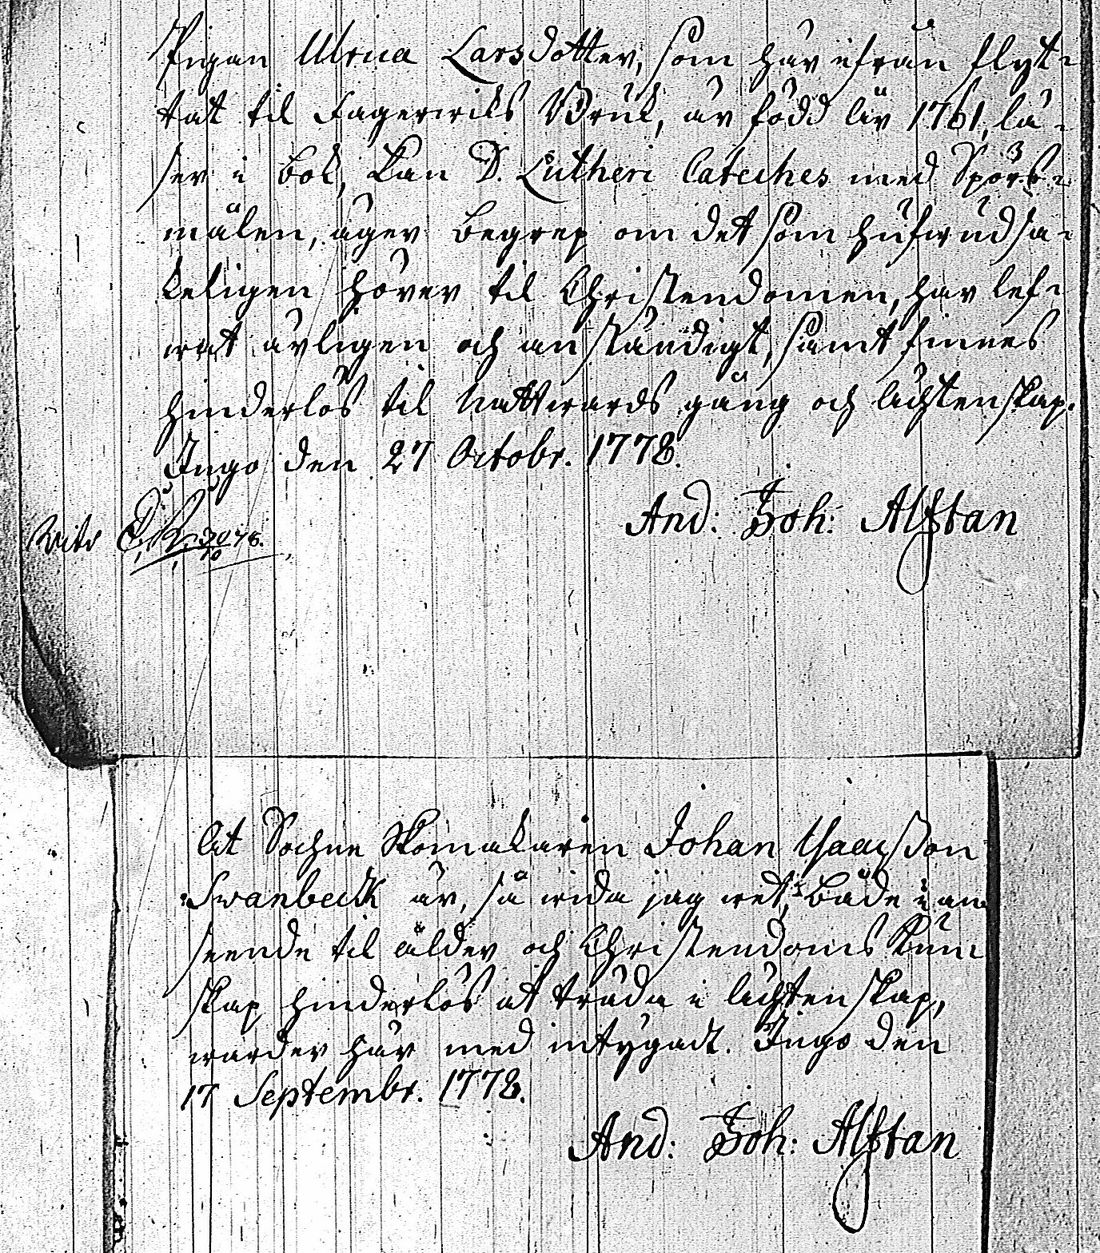 Pigan Ulrica Larsdotter, som här ifrån flyt-
tat til Fagerwiks Bruk, är född åv 1761, lä-
ser i bok, kan D. Lutheri Cateches med Spörs-
målen, äger begrep om det som hufwudsa-
keligen hörer til Christendomen, har lef-
wat ärligen och anständigt, samt finnes
hinderlös til Nattwards gång och ächtenskap.
Ingo den 27 Octobr. 1778.
And: Joh: Alftan
At Sochne Skomakaren Johan Isacsson
Swanbeck är, så wida jag wet, både i an-
seende til ålder och Christendoms kun-
skap hinderlös at träda i ächtenskap,
warder här med intygadt. Ingo den
17 Septembr. 1778.
And: Joh: Alftan